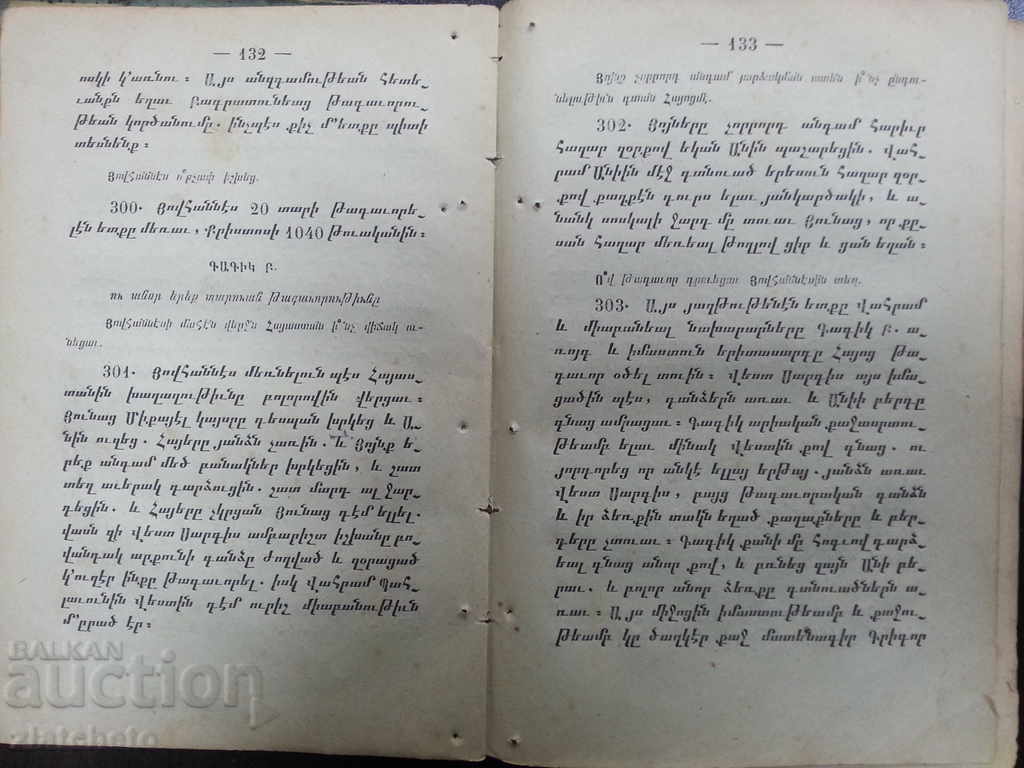 — 132 —
ոսկի կ'առնու։ Այս անզգամութեան հետե֊
ւանքն եղաւ Բագրատունեաց թագաւորու֊
թեան կործանումը. ինչպէս քիչ մ'ետքը պիտի
տեսնենք։
Յովհաննէս ո՞րչափ իշխեց.
300. Յովհաննէս 20 տարի թագաւորե֊
լէն ետքը մեռաւ, Քրիստոսի 1040 թուականին։
ԳԱԳԻԿ Բ.
ու անոր երեք տարուան թագաւորութիւնը
Յովհաննէսի մահէն վերջն Հայաստան ի՞նչ վիճակ ու֊
նեցաւ.
301. Յովհաննէս մեռնելուն պէս Հայաս֊
տանին խաղաղութիւնը բոլորովին վերցաւ։
Յունաց Միքայէլ կայսրը դեսպան խրկեց և Ա֊
նին ուզեց. Հայերը յանձն չառին. և Յոյնք ե֊
րեք անգամ մեծ բանակներ խրկեցին, և շատ
տեղ աւերակ դարձուցին. շատ մարդ ալ ջար֊
դեցին. և Հայերը չկրցան Յունաց դէմ ելլել.
վասն զի Վեստ Սարգիս ամբարիշտ իշխանը բո֊
վանդակ արքունի գանձը ժողված և զօրացած
կ'ուզէր ինքը թագաւորել. իսկ Վահրամ Պահ֊
լաւունին Վեստին դէմ ուրիշ միաբանութիւն
մ'ըրած էր։
— 133 —
Յոյնք չորրորդ անգամ յարձակման ատեն ի՞նչ ընդու֊
նելութիւն գտան Հայոցմէ.
302. Յոյները չորրորդ անգամ հարիւր
հազար զօրքով եկան Անին պաշարեցին. Վահ֊
րամ Անիին մէջ գտնուած երեսուն հազար զօր֊
քով քաղքէն դուրս ելաւ յանկարծակի, և ա֊
նանկ սոսկալի ջարդ մը տուաւ Յունաց, որ քը֊
սան հազար մեռեալ թողլով ցիր և ցան եղան։
Ո՞վ թագաւոր դրուեցաւ Յովհաննէսին տեղ.
303. Այս յաղթութենէն ետքը Վահրամ
և միաբանեալ նախարարները Գագիկ Բ. ա֊
ռոյգ և իմաստուն երիտասարդը Հայոց թա֊
գաւոր օծել տուին։ Վեստ Սարգիս այս իմա֊
ցածին պէս, գանձերն առաւ և Անիի բերդը
գնաց ամրացաւ։ Գագիկ արիական քաջասրտու֊
թեամբ ելաւ մինակ Վեստին քով գնաց. ու
յորդորեց որ անկէ ելլայ երթայ. յանձն առաւ
Վեստ Սարգիս, բայց թագաւորական գանձն
և իր ձեռքին տակն եղած քաղաքները և բեր֊
դերը չտուաւ։ Գագիկ քանի մը հոգւով դարձ֊
եալ գնաց անոր քով, և բռնեց զայն Անի բե֊
րաւ. և բոլոր անոր ձեռքը գտնուածներն ա֊
ռաւ։ Այս միջոցին իմաստութեամբ և քաջու֊
թեամբ կը ծաղկէր քաջ մատենագիր Գրիգոր
BALKAN
auction
zlatebeto